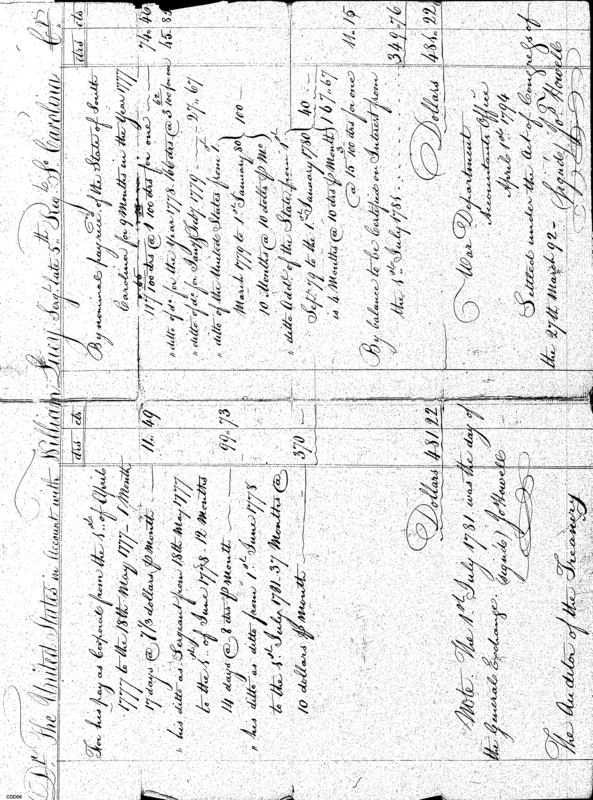 Dr. The United States in Account with William Lucy Sergt. late 5th Regt. So. Carolina Cr.
drs cts
For his pay as Corporal from the 1st of April
1777 to the 18th May 1777 - 1 Month
17 days @ 7 1/3 dollars p Month — 11. 49
" his ditto as Sergeant from 18th May 1777
to the 1st of June 1778 12 Months
14 days @ 8 drs p Month — 99. 73
" his ditto as ditto from 1st June 1778
to the 1st July 1781 37 Months @
10 dollars p Month 370 —
Dollars 481 22
Note. The 1st July 1781 was the day of
the General Exchange. (signed) Jo Howell
The Auditor of the Treasury
drs cts
By nominal pay rece. of the State of South
Carolina for 9 Months in the Year 1777
117 100 drs @ 100 drs for one — 74. 46
" ditto of do. for the Year 1778 166 drs @ 3 100 for one 45. 83
" ditto of do. for July 1779 — 27. 67
" ditto of the United States from 1st
March 1779 to 1st January 80
10 Months @ 10 dolls p Mo } 100 —
" ditto Addl. of the State from 1st
Sepr. 79 to the 1st January 1780
is 4 Months @ 10 drs p Month } 40 —
167. 67
@ 15 100 drs for one 11. 15
By balance to be Certified on Interest from
the 1st July 1781 . . . . . . . . 349. 76
Dollars 481. 22
War Department
Accountants Office
April 1st 1794
Settled under the Act of Congress of
the 27th March 92 — (signed) Jo Howell
COD06